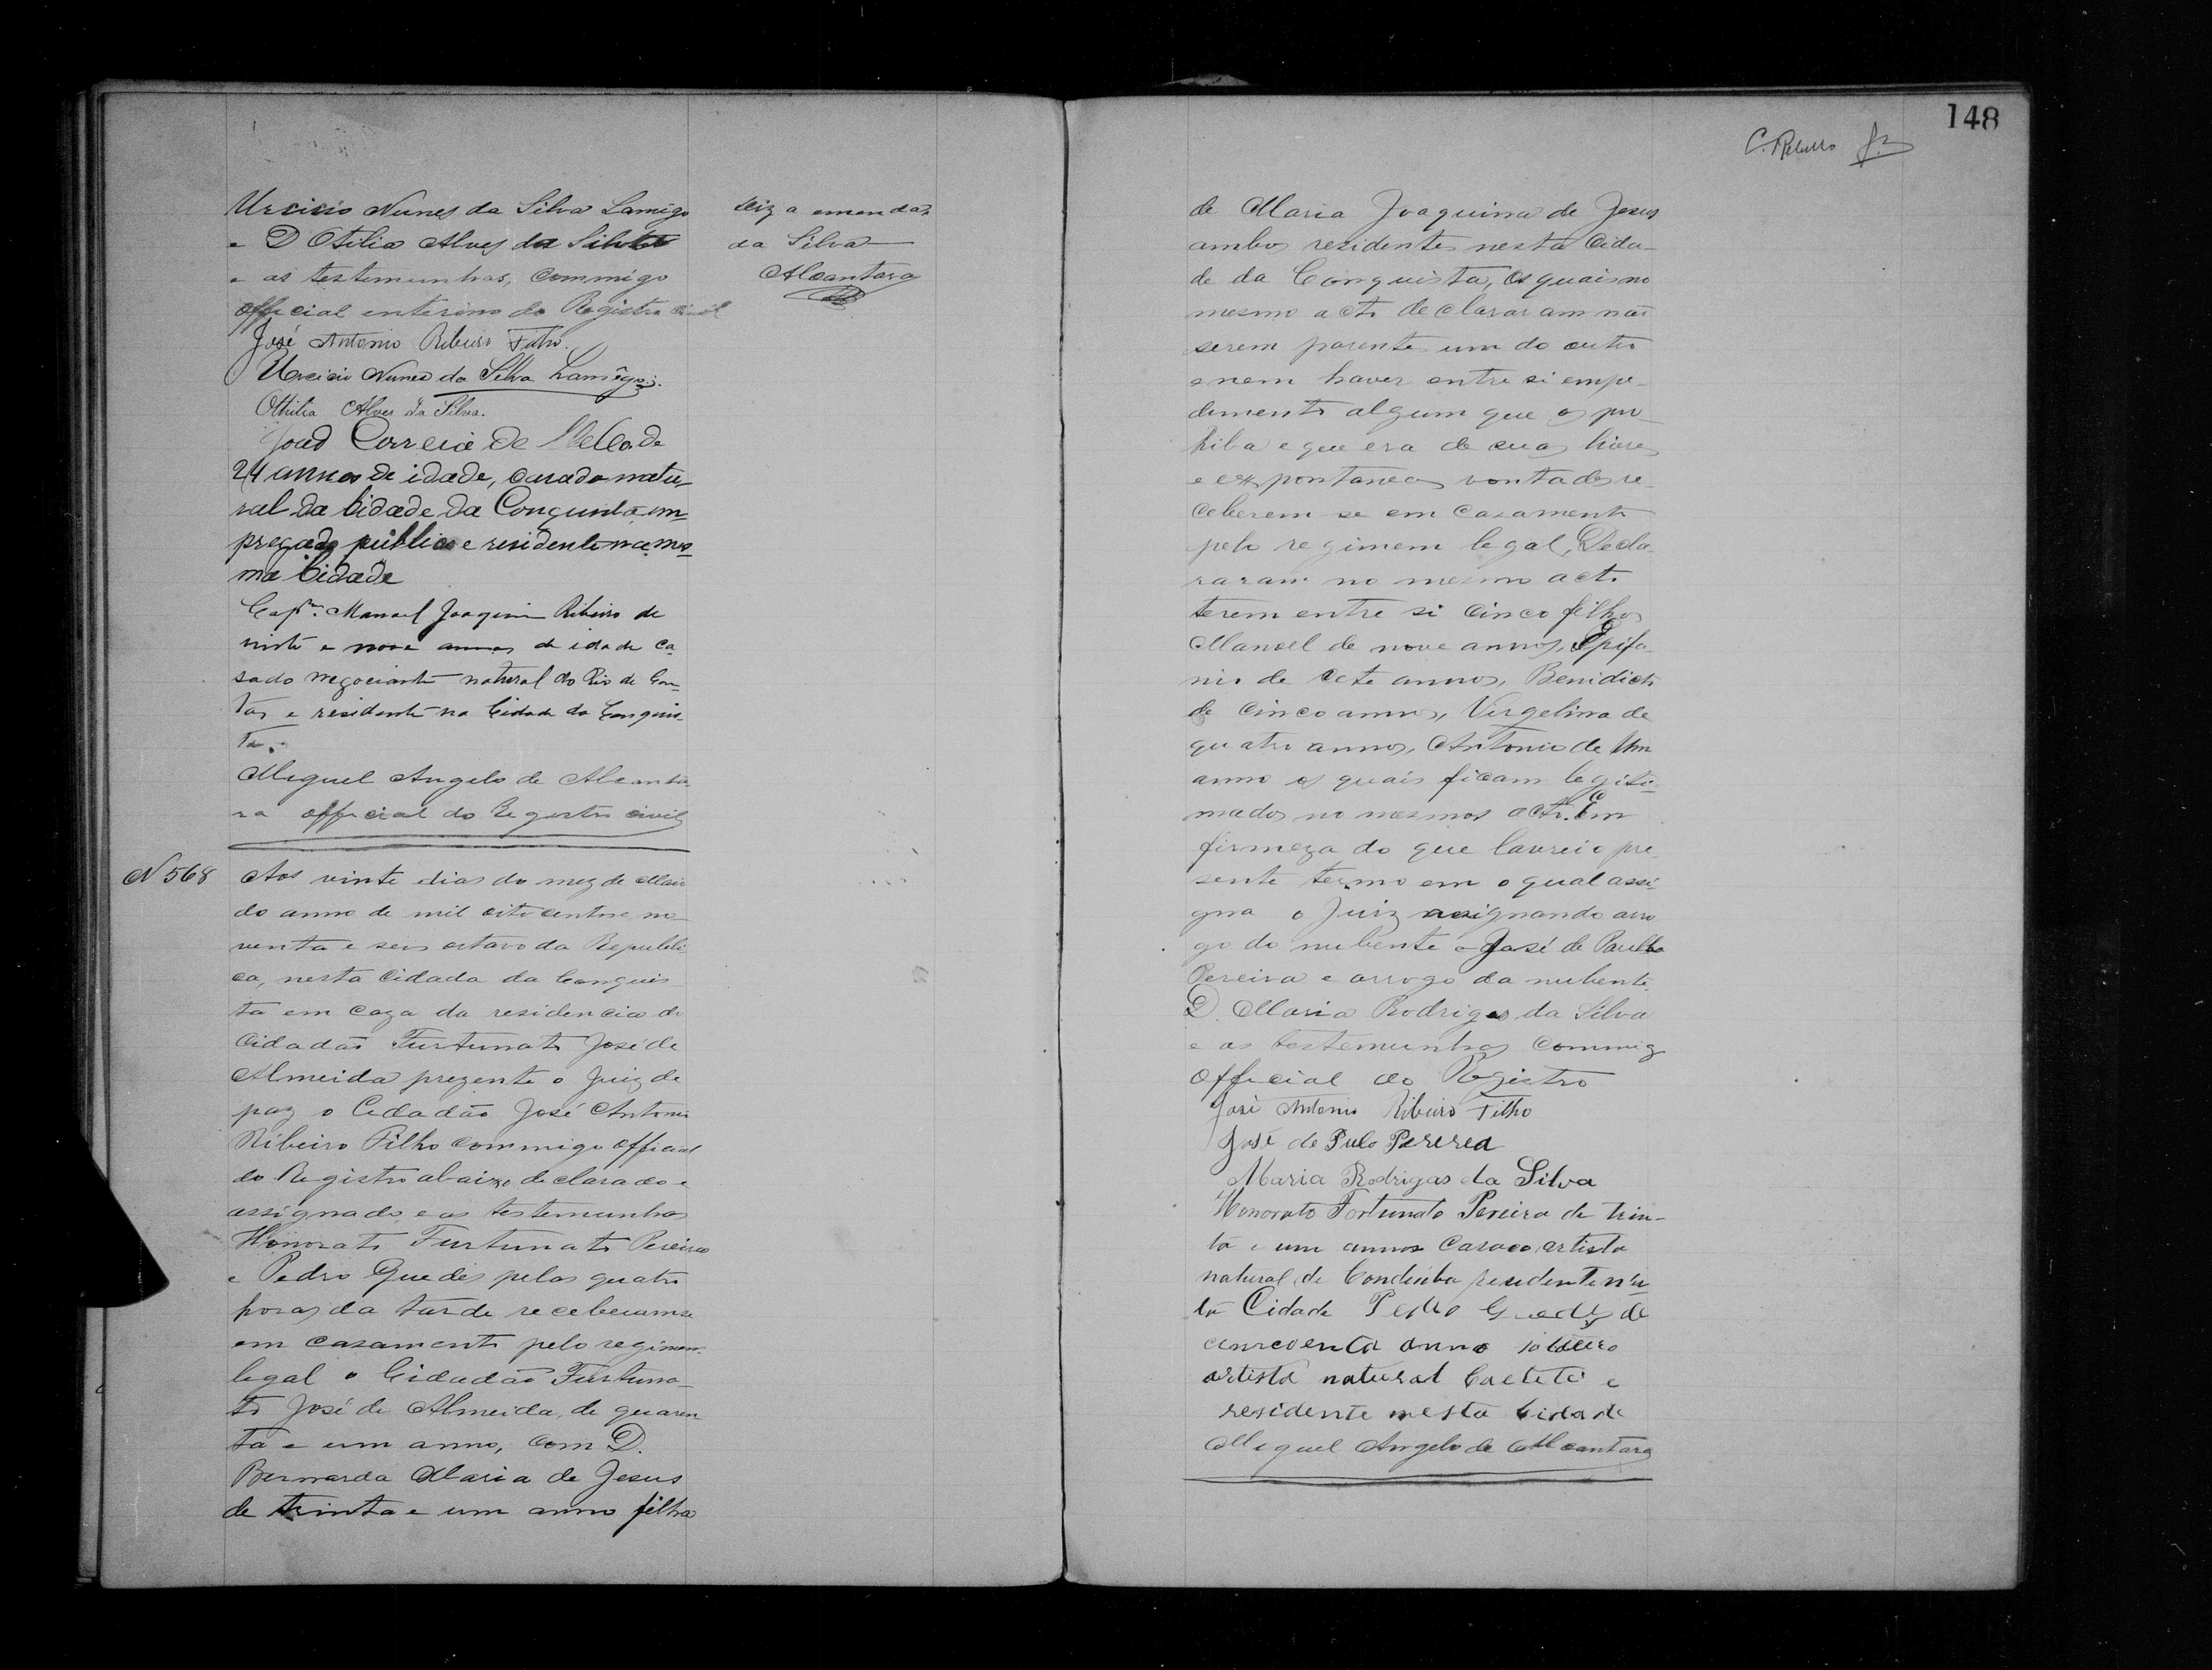 148
C. Rebello Jr
Urcicio Nunes da Silva Lamêgo
e D Otilia Alves da Silva
e as testemunhas, commigo
official enterino do Registro civil
José Antonio Ribeiro Filho.
Urcicio Nunes da Silva Lamêgo.
Othilia Alves da Silva.
Correia de Mello de
24 annos de idade, casado natu-
ral da Cidade da Conquista em-
pregado publico e residente na mes-
ma Cidade
Capm. Manoel Joaquim Ribeiro de
vinte e nove annos de idade ca
sado negociante natural do Rio de Con-
tas e residente na Cidade da Conquis-
ta.
Miguel Angelo de Alcanta-
ra official do Registro civil
diz a emenda,
da Silva
Alcantara
N 568
Aos vinte dias do mez de Maio
do anno de mil oito centos e no-
venta e seis oitavo da Republi-
ca, nesta Cidada da Conquis-
ta em caza da residencia do
Cidadão Furtunato José de
Almeida prezente o Juiz de
paz o Cidadão José Antonio
Ribeiro Filho commigo official
do Registro abaixo declarado e
assignado, e as testemunhas
Honorato Furtunato Pereira
e Pedro Guedes pelas quatro
horas da tarde receberam se
em casamento pelo regimem
legal o Cidadão Furtuna-
to José de Almeida, de quaren-
ta e um anno, com D.
Bernarda Maria de Jesus
de trinta e um anno filha
de Maria Joaquina de Jesus
ambos residentes nesta Cida-
de da Conquista, Os quais no
mesmo acto declararam não
serem parentes um do outro
e nem haver entre si empe-
dimento algum que os pro
hiba e que era de suas livres
e expontaneas vontades re-
ceberem se em Casamento
pelo regimem legal, Decla-
raram no mesmo acto
terem entre si cinco filhos
Manoel de nove annos, Epifa-
nio de cete annos, Benidicto
de cinco annos, Virgelina de
quatro annos, Antonio de Um
anno os quais ficam legiti-
mados no mesmos acto. Em
firmeza do que lavrei o pre-
sente termo em o qual assi-
gna o Juiz assignando arro
go do nubente a José de Paulla
Pereira e arrogo da nubente
D. Maria Rodrigas da Silva
e as testemunhas commigo
Official do Registro
José Antonio Ribeiro Filho
José de Pulo Pererea
Maria Rodrigas da Silva
Honorato Fortunato Pereira de trin-
ta e um annos Casado artista
natural de Condeúba residente nes-
ta Cidade Pedro Guedes de
cincoenta anno solteiro
artista natural Caeteté e
residente nesta Cidade
Miguel Angelo de Alcantara